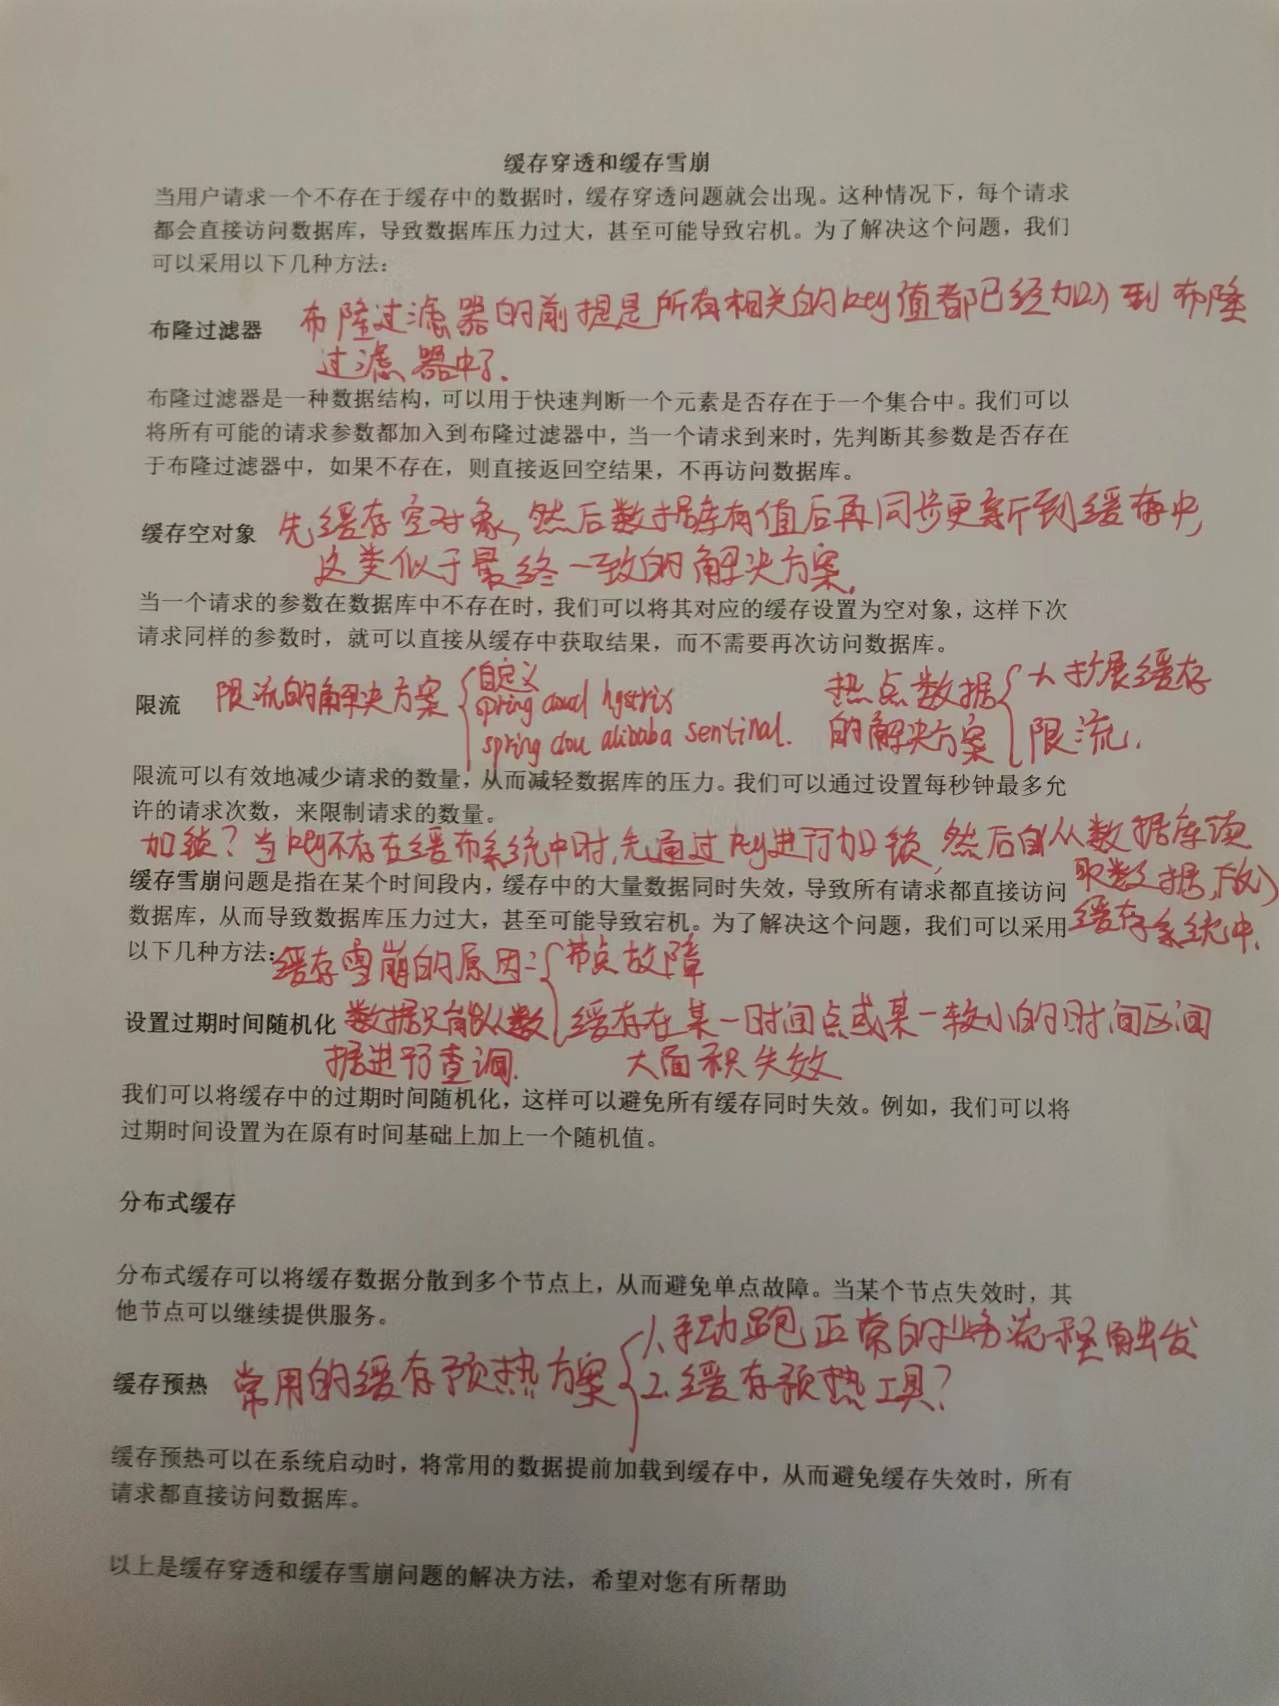 缓存穿透和缓存雪崩
当用户请求一个不存在于缓存中的数据时，缓存穿透问题就会出现。这种情况下，每个请求
都会直接访问数据库，导致数据库压力过大，甚至可能导致宕机。为了解决这个问题，我们
可以采用以下几种方法：
布隆过滤器
布隆过滤器的前提是所有相关的key值都已经加入到布隆
过滤器中了.
布隆过滤器是一种数据结构，可以用于快速判断一个元素是否存在于一个集合中。我们可以
将所有可能的请求参数都加入到布隆过滤器中，当一个请求到来时，先判断其参数是否存在
于布隆过滤器中，如果不存在，则直接返回空结果，不再访问数据库。
缓存空对象
先缓存空对象，然后数据库有值后再同步更新到缓存中,
这类似于最终一致的解决方案.
当一个请求的参数在数据库中不存在时，我们可以将其对应的缓存设置为空对象，这样下次
请求同样的参数时，就可以直接从缓存中获取结果，而不需要再次访问数据库。
限流
限流的解决方案
自定义
spring hystrix
spring alibaba sentinal.
热点数据
的解决方案
扩展缓存
限流.
限流可以有效地减少请求的数量，从而减轻数据库的压力。我们可以通过设置每秒钟最多允
许的请求次数，来限制请求的数量。
加锁？当key不存在缓存系统中时,先通过key进行加锁,然后从数据库读
取数据,放
缓存系统中.
缓存雪崩问题是指在某个时间段内，缓存中的大量数据同时失效，导致所有请求都直接访问
数据库，从而导致数据库压力过大，甚至可能导致宕机。为了解决这个问题，我们可以采用
以下几种方法：
缓存雪崩的原因:
节点故障
缓存在某一时间点或某一较小的时间区间
大面积失效
设置过期时间随机化
数据只能从数
据进行查询.
我们可以将缓存中的过期时间随机化，这样可以避免所有缓存同时失效。例如，我们可以将
过期时间设置为在原有时间基础上加上一个随机值。
分布式缓存
分布式缓存可以将缓存数据分散到多个节点上，从而避免单点故障。当某个节点失效时，其
他节点可以继续提供服务。
缓存预热
常用的缓存预热方案
1.手动跑正常的业务流程触发
2.缓存预热工具？
缓存预热可以在系统启动时，将常用的数据提前加载到缓存中，从而避免缓存失效时，所有
请求都直接访问数据库。
以上是缓存穿透和缓存雪崩问题的解决方法，希望对您有所帮助